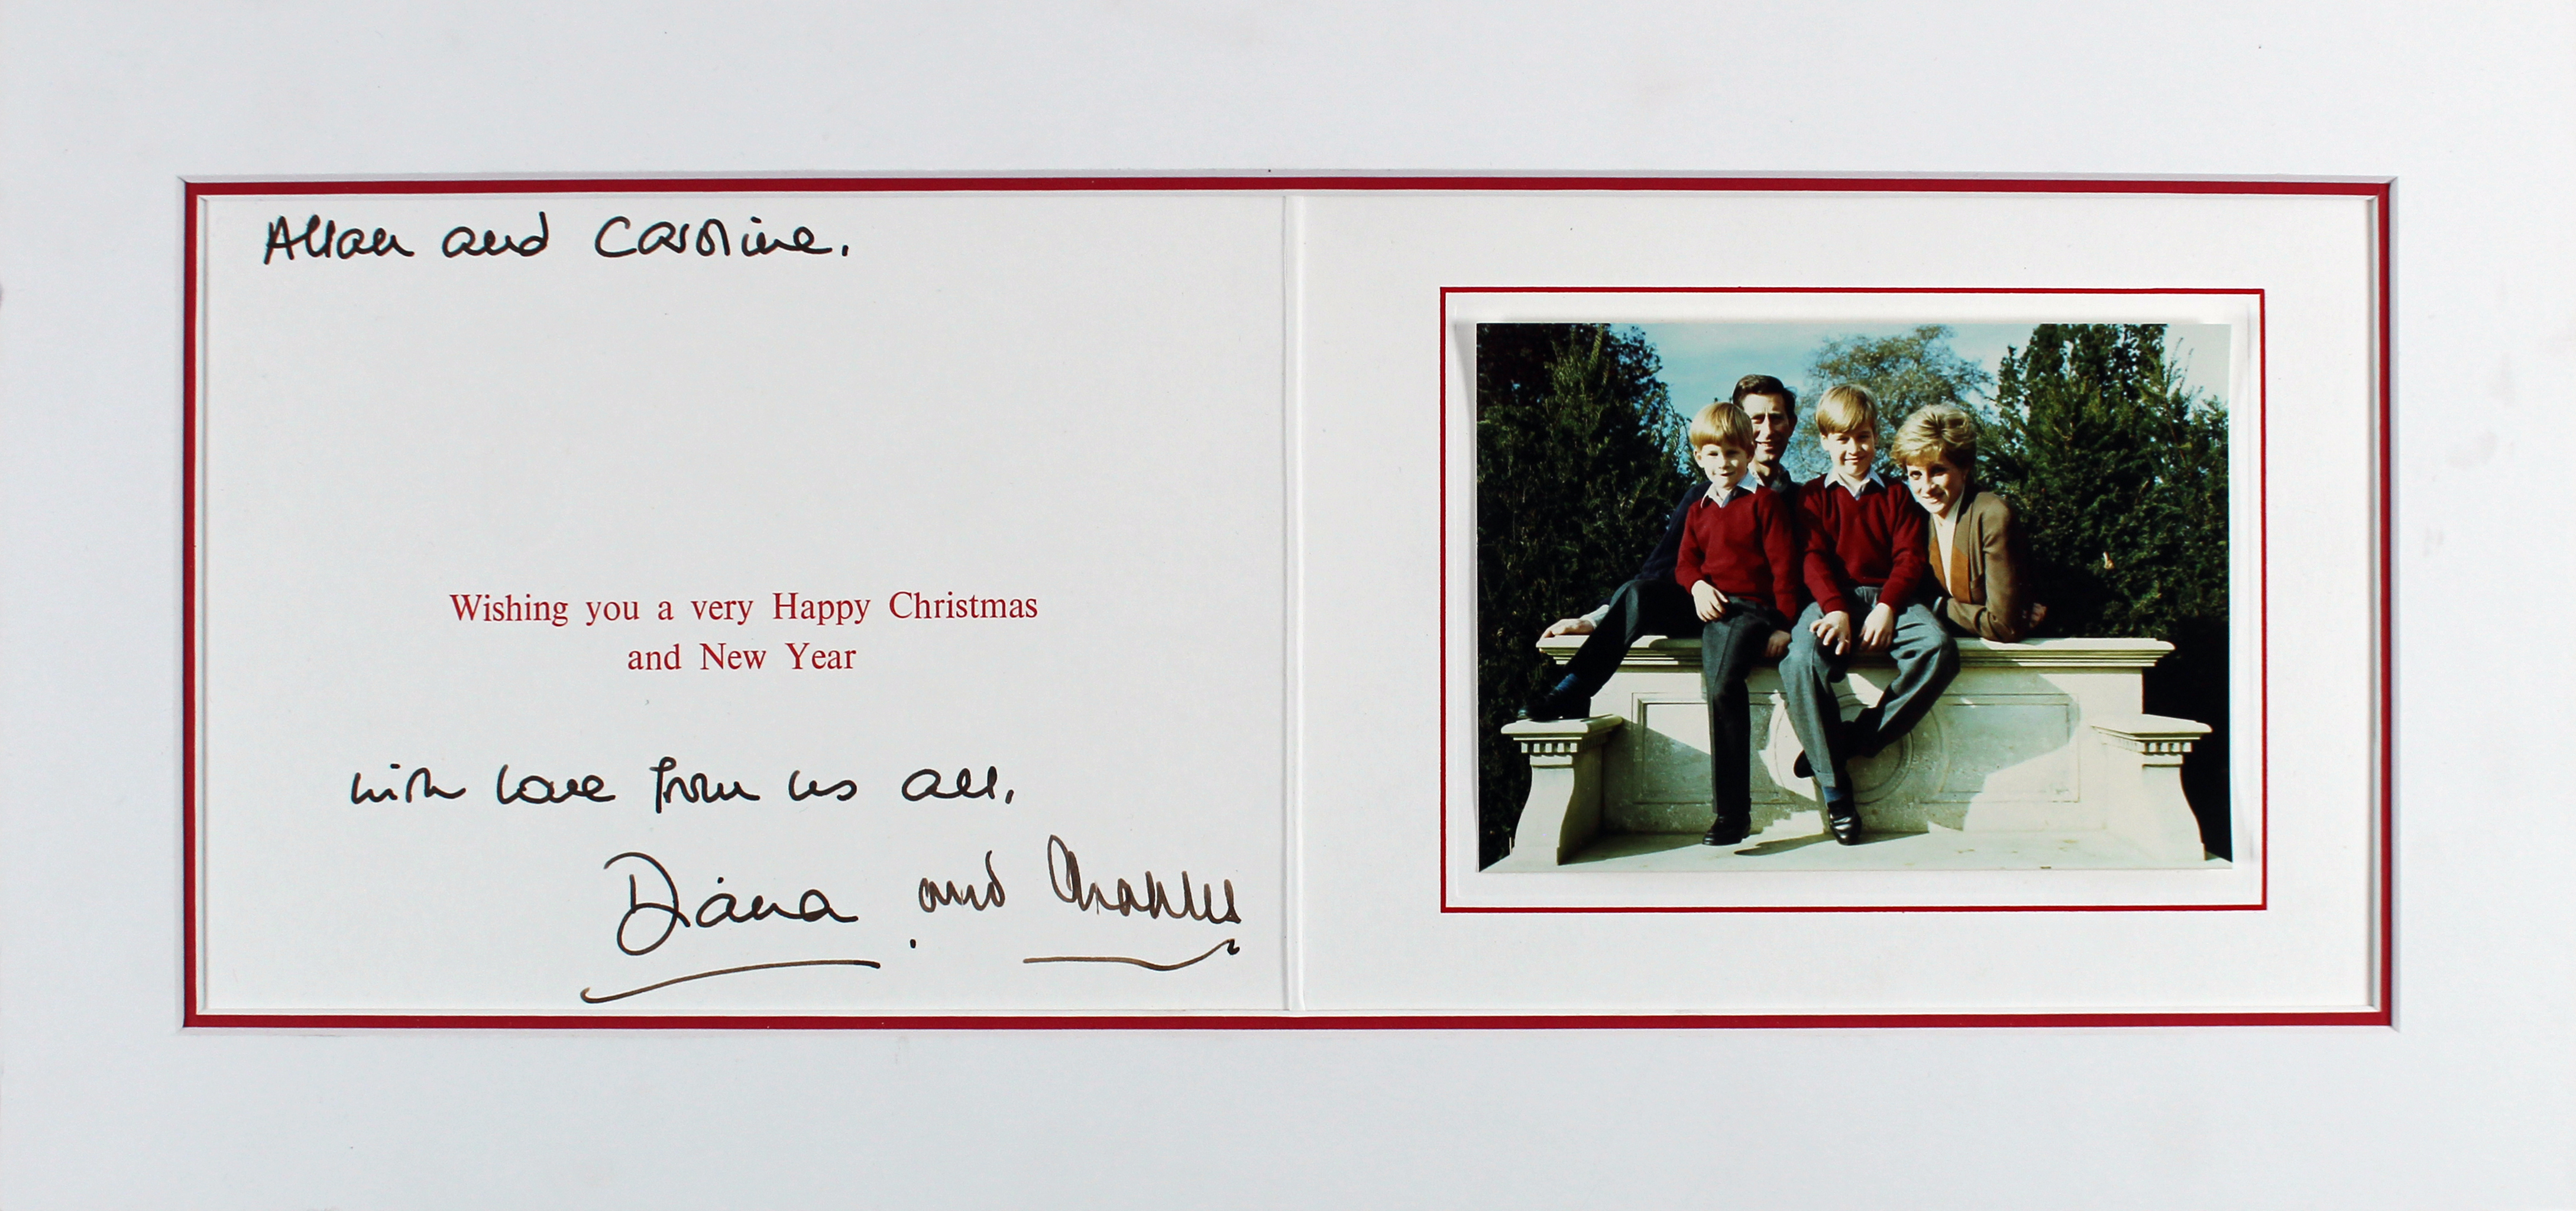 Allan and Caroline.
Wishing you a very Happy Christmas
and New Year
with love from us all.
Diana and Charles